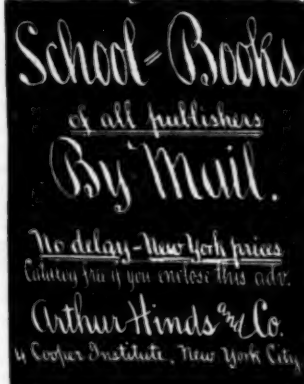 School-Books
of all publishers
By Mail.
No delay-New York prices
Catalog free if you enclose this adv.
Arthur Hinds and Co.
4 Cooper Institute, New York City